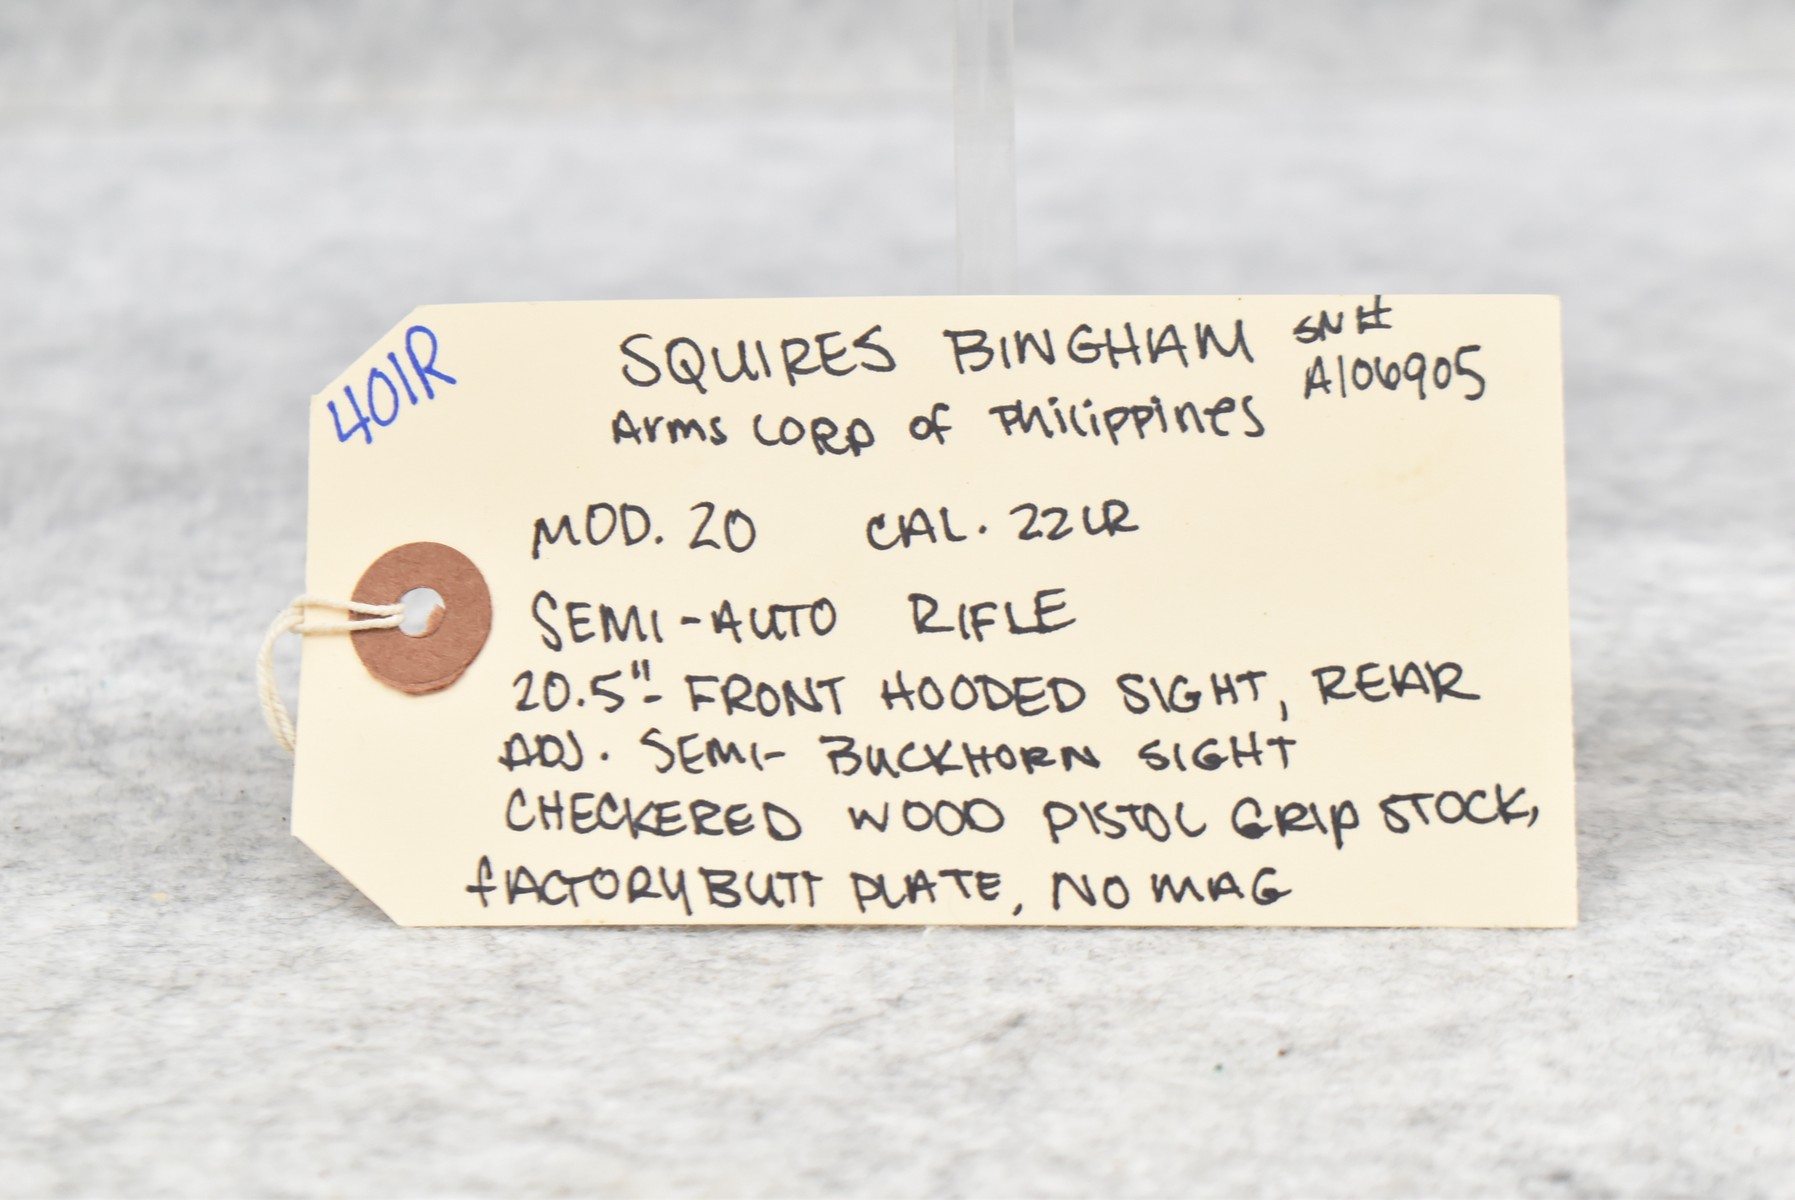 401R
SQUIRES BINGHAM SN#
Arms CORP of Philippines A106905
MOD. 20 CAL. 22LR
SEMI-AUTO RIFLE
20.5"- FRONT HOODED SIGHT, REAR
ADJ. SEMI- BUCKHORN SIGHT
CHECKERED WOOD PISTOL GRIP STOCK,
fACTORY BUTT PLATE, NO MAG